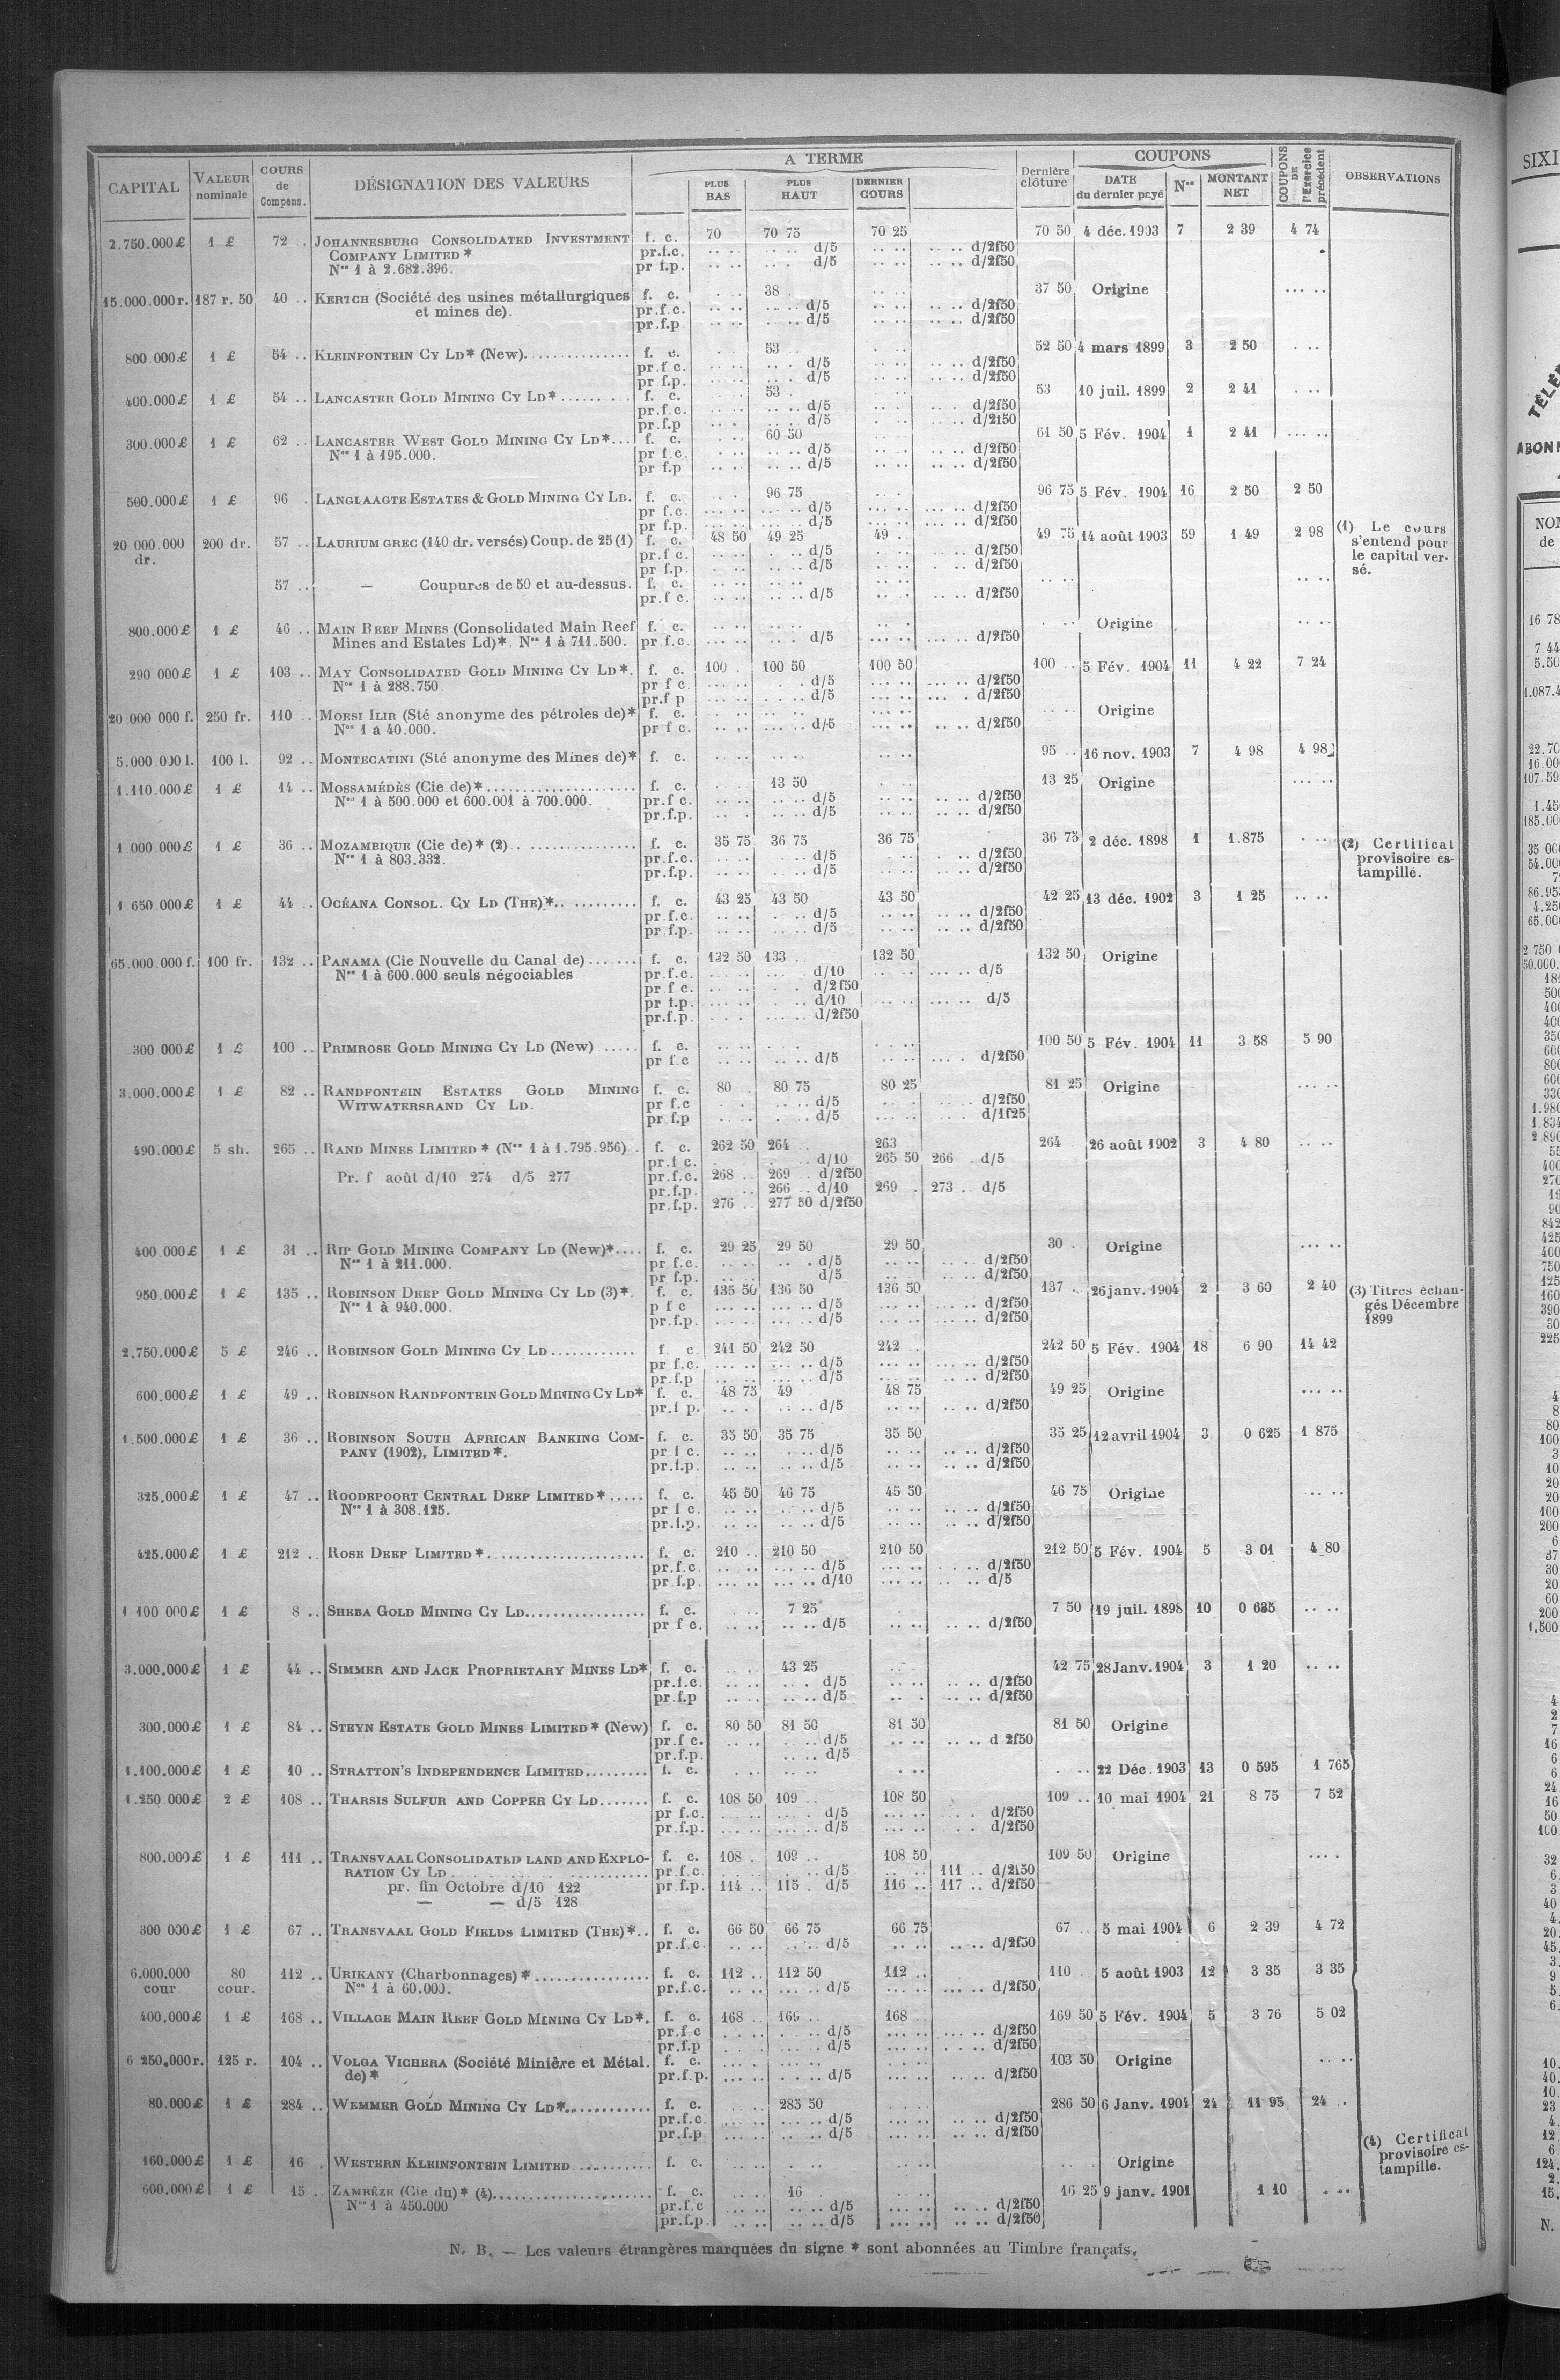 A TERME
COUPONS
CAPITAL VALEUR nominale COURS de Compens. DÉSIGNATION DES VALEURS PLUS BAS PLUS HAUT DERNIER COURS Dernière clôture DATE du dernier payé Nos MONTANT NET COUPONS DE l'Exercice précédent OBSERVATIONS
2.750.000£ 1 £ 72 .. JOHANNESBURG CONSOLIDATED INVESTMENT f. c. 70 70 75 70 25 70 50 4 déc. 1903 7 2 39 4 74
COMPANY LIMITED * pr.f.c. d/5 d/2f50
Nos 1 à 2.682.396. pr f.p. d/5 d/2f50
15.000.000r. 187 r. 50 40 .. KERTCH (Société des usines métallurgiques f. c. 38 . 37 50 Origine
et mines de). pr.f.c. d/5 d/2f50
pr.f.p d/5 d/2f50
800.000£ 1 £ 54 .. KLEINFONTEIN CY LD* (New) f. c. 53 .. 52 50 4 mars 1899 3 2 50
pr.f c. d/5 d/2f50
pr f.p. d/5 d/2f50
400.000£ 1 £ 54 .. LANCASTER GOLD MINING CY LD* f. c. 53 . 53 10 juil. 1899 2 2 41
pr.f.c. d/5 d/2f50
pr.f.p d/5 d/2f50
300.000£ 1 £ 62 .. LANCASTER WEST GOLD MINING CY LD*... f. c. 60 50 61 50 5 Fév. 1904 1 2 41
Nos 1 à 195.000. pr f.c. d/5 d/2f50
pr f.p d/5 d/2f50
500.000£ 1 £ 96 . LANGLAAGTE ESTATES & GOLD MINING CY LD. f. c. 96 75 96 75 5 Fév. 1904 16 2 50 2 50
pr f.c. d/5 d/2f50
pr f.p. d/5 d/2f50
20 000.000 dr. 200 dr. 57 .. LAURIUM GREC (140 dr. versés) Coup. de 25 (1) f. c. 48 50 49 25 49 .. 49 75 14 août 1903 59 1 49 2 98 (1) Le cours s'entend pour le capital versé.
pr.f c. d/5 d/2f50
pr f.p. d/5 d/2f50
57 .. — Coupures de 50 et au-dessus. f. c.
pr.f c. d/5 d/2f50
800.000£ 1 £ 46 .. MAIN REEF MINES (Consolidated Main Reef f. c. Origine
Mines and Estates Ld)*. Nos 1 à 711.500. pr f.c. d/5 d/2f50
290 000£ 1 £ 103 .. MAY CONSOLIDATED GOLD MINING CY LD*. f. c. 100 . 100 50 100 50 100 .. 5 Fév. 1904 11 4 22 7 24
Nos 1 à 288.750 pr f c. d/5 d/2f50
pr.f p d/5 d/2f50
20 000 000 f. 250 fr. 110 .. MORSI ILIR (Sté anonyme des pétroles de)* f. c. Origine
Nos 1 à 40.000. pr f c. d/5 d/2f50
5.000.000 l. 100 l. 92 .. MONTECATINI (Sté anonyme des Mines de)* f. c. 95 .. 16 nov. 1903 7 4 98 4 98
1.110.000£ 1 £ 14 .. MOSSAMÉDÈS (Cie de)* f. c. 13 50 13 25 Origine
Nos 1 à 500.000 et 600.001 à 700.000. pr.f c. d/5 d/2f50
pr.f.p. d/5 d/2f50
1 000 000£ 1 £ 36 .. MOZAMBIQUE (Cie de)* (2) f. c. 35 75 36 75 36 75 36 75 2 déc. 1898 1 1.875 (2) Certificat provisoire estampillé.
Nos 1 à 803.332. pr.f.c. d/5 d/2f50
pr.f.p. d/5 d/2f50
1 650 000£ 1 £ 44 .. OCÉANA CONSOL. CY LD (THE)* f. c. 43 25 43 50 43 50 42 25 13 déc. 1902 3 1 25
pr.f.c. d/5 d/2f50
pr f.p. d/5 d/2f50
65.000.000 f. 100 fr. 132 .. PANAMA (Cie Nouvelle du Canal de) f. c. 132 50 133 .. 132 50 132 50 Origine
Nos 1 à 600.000 seuls négociables pr.f.c. d/10 d/5
pr f c. d/2f50
pr f.p. d/10 d/5
pr.f.p. d/2f50
300 000£ 1 £ 100 .. PRIMROSE GOLD MINING CY LD (New) f. c. 100 50 5 Fév. 1904 11 3 58 5 90
pr f c d/5 d/2f50
3.000.000£ 1 £ 82 .. RANDFONTEIN ESTATES GOLD MINING f. c. 80 .. 80 75 80 25 81 25 Origine
WITWATERSRAND CY LD. pr f.c d/5 d/2f50
pr f.p d/5 d/1f25
490.000£ 5 sh. 265 .. RAND MINES LIMITED * (Nos 1 à 1.795.956) f. c. 262 50 264 263 264 26 août 1902 3 4 80
pr.f c. d/10 265 50 266 . d/5
Pr. f août d/10 274 d/5 277 pr.f.c. 268 .. 269 .. d/2f50
pr.f.p. 266 .. d/10 269 . 273 . d/5
pr.f.p. 276 .. 277 50 d/2f50
400.000£ 1 £ 31 .. RIP GOLD MINING COMPANY LD (New)*.... f. c. 29 25 29 50 29 50 30 .. Origine
Nos 1 à 211.000. pr f.c. d/5 d/2f50
pr f.p. d/5 d/2f50
950.000£ 1 £ 135 .. ROBINSON DEEP GOLD MINING CY LD (3)*. f. c. 135 50 136 50 136 50 137 .. 26 janv. 1904 2 3 60 2 40 (3) Titres échangés Décembre 1899
Nos 1 à 940.000. p f c d/5 d/2f50
pr.f.p. d/5 d/2f50
2,750.000£ 5 £ 246 .. ROBINSON GOLD MINING CY LD f. c. 241 50 242 50 242 .. 242 50 5 Fév. 1904 18 6 90 14 42
pr f.c. d/5 d/2f50
pr.f.p d/5 d/2f50
600.000£ 1 £ 49 .. ROBINSON RANDFONTEIN GOLD MINING CY LD* f. c. 48 75 49 48 75 49 25 Origine
pr.f p. d/5 d/2f50
1.500.000£ 1 £ 36 .. ROBINSON SOUTH AFRICAN BANKING COM- f. c. 35 50 35 75 35 50 35 25 12 avril 1904 3 0 625 1 875
PANY (1902), LIMITED*. pr f c. d/5 d/2f50
pr.f.p. d/5 d/2f50
325,000£ 1 £ 47 .. ROODEPOORT CENTRAL DEEP LIMITED * f. c. 45 50 46 75 45 50 46 75 Origine
Nos 1 à 308.125. pr f c d/5 d/2f50
pr.f.p. d/5 d/2f50
425.000£ 1 £ 212 .. ROSE DEEP LIMITED * f. c. 210 .. 210 50 210 50 212 50 5 Fév. 1904 5 3 01 4 80
pr.f.c d/5 d/2f50
pr f.p. d/10 d/5
1 100 000£ 1 £ 8 .. SHEBA GOLD MINING CY LD f. c. 7 25 7 50 19 juil. 1898 10 0 635
pr f c. d/5 d/2f50
3.000.000£ 1 £ 44 .. SIMMER AND JACK PROPRIETARY MINES LD* f. c. 43 25 42 75 28 Janv. 1904 3 1 20
pr.f.c. d/5 d/2f50
pr.f.p d/5 d/2f50
300.000£ 1 £ 84 .. STEYN ESTATE GOLD MINES LIMITED * (New) f. c. 80 50 81 50 81 50 81 50 Origine
pr.f c. d/5 d 2f50
pr.f.p. d/5
1.100.000£ 1 £ 10 .. STRATTON'S INDEPENDENCE LIMITED f. c. 22 Déc. 1903 13 0 595 1 765
1.250 000£ 2 £ 108 .. THARSIS SULFUR AND COPPER CY LD f. c. 108 50 109 .. 108 50 109 .. 10 mai 1904 21 8 75 7 52
pr f.c. d/5 d/2f50
pr.f.p. d/5 d/2f50
800.000£ 1 £ 111 .. TRANSVAAL CONSOLIDATED LAND AND EXPLO- f. c. 108 . 109 .. 108 50 109 50 Origine
RATION CY LD pr.f.c. d/5 111 .. d/2f50
pr. fin Octobre d/10 122 pr.f.p. 114 .. 115 . d/5 116 .. 117 .. d/2f50
— — d/5 128
300 000£ 1 £ 67 .. TRANSVAAL GOLD FIELDS LIMITED (THE)*.. f. c. 66 50 66 75 66 75 67 .. 5 mai 1904 6 2 39 4 72
pr.f.c d/5 d/2f50
6.000.000 cour 80 cour. 112 .. URIKANY (Charbonnages)* f. c. 112 .. 112 50 112 .. 110 . 5 août 1903 12 3 35 3 35
Nos 1 à 60.000. pr.f.c. d/5 d/2f50
400,000£ 1 £ 168 .. VILLAGE MAIN REEF GOLD MINING CY LD*. f. c. 168 .. 169 .. 168 .. 169 50 5 Fév. 1904 5 3 76 5 02
pr.f c d/5 d/2f50
pr.f.p d/5 d/2f50
6 250,000r. 125 r. 104 .. VOLGA VICHERA (Société Minière et Métal. f. c. 103 50 Origine
de)* pr.f.p. d/5 d/2f50
80.000£ 1 £ 284 .. WEMMER GOLD MINING CY LD* f. c. 285 50 286 50 6 Janv. 1904 24 11 95 24 ..
pr.f.c. d/5 d/2f50
pr.f.p d/5 d/2f50
160.000£ 1 £ 16 . WESTERN KLEINFONTEIN LIMITED f. c. Origine (4) Certificat provisoire estampille.
600,000£ 1 £ 15 . ZAMBÈZE (Cie du)* (4) f. c. 16 16 25 9 janv. 1901 1 10
Nos 1 à 450.000 pr.f.c d/5 d/2f50
pr.f.p. d/5 d/2f50
N. B. — Les valeurs étrangères marquées du signe * sont abonnées au Timbre français.
SIXI
TÉLÉ
ABON
NO
de